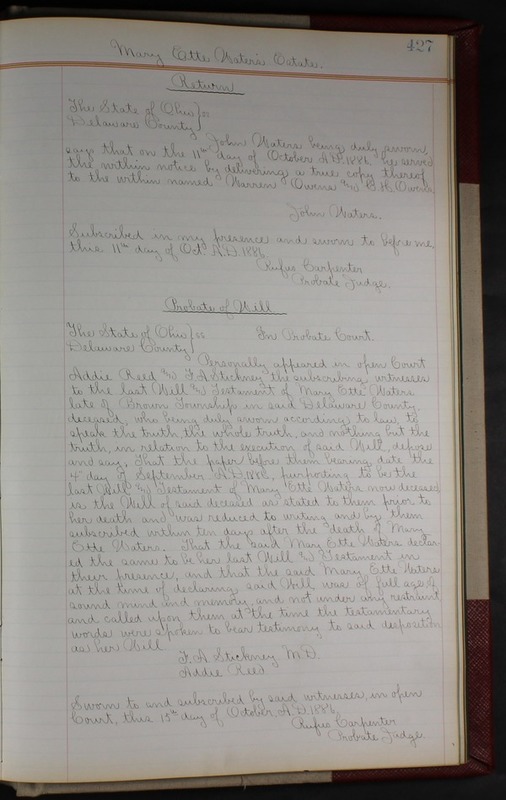 427
Mary Ette Waters Estate.
Return
The State of Ohio } ss
Delaware County }
John Waters being duly sworn,
says that on the 11th day of October A.D. 1886, he served
the within notice by delivering a true copy thereof
to the within named Warren Owens & Owens
John Waters.
Subscribed in my presence and sworn to before me,
this 11th day of Oct. A.D. 1886.
Rufus Carpenter
Probate Judge.
Probate of Will
The State of Ohio } ss In Probate Court.
Delaware County }
Personally appeared in open Court
Addie Reed & F. A. Stickney the subscribing witnesses
to the last Will & Testament of Mary Ette Waters
late of Brown Township in said Delaware County.
deceased, who being duly sworn according to law, to
speak the truth, the whole truth, and nothing but the
truth, in relation to the execution of said Will, depose
and say, That the paper before them bearing date the
4" day of September A.D. 1886, purporting to be the
last Will & Testament of Mary Ette Waters now deceased
is the Will of said deceased as stated to them prior to
her death and was reduced to writing and by them
subscribed within ten days after the death of Mary
Ette Waters. That the said Mary Ette Waters declar-
ed the same to be her last Will & Testament in
their presence, and that the said Mary Ette Waters
at the time of declaring said Will was of full age &
sound mind and memory and not under any restraint
and called upon them at the time the testamentary
words were spoken to bear testimony to said disposition
as her Will
F. A. Stickney M.D.
Addie Reed
Sworn to and subscribed by said witnesses, in open
Court, this 15th day of October, A.D. 1886.
Rufus Carpenter
Probate Judge.